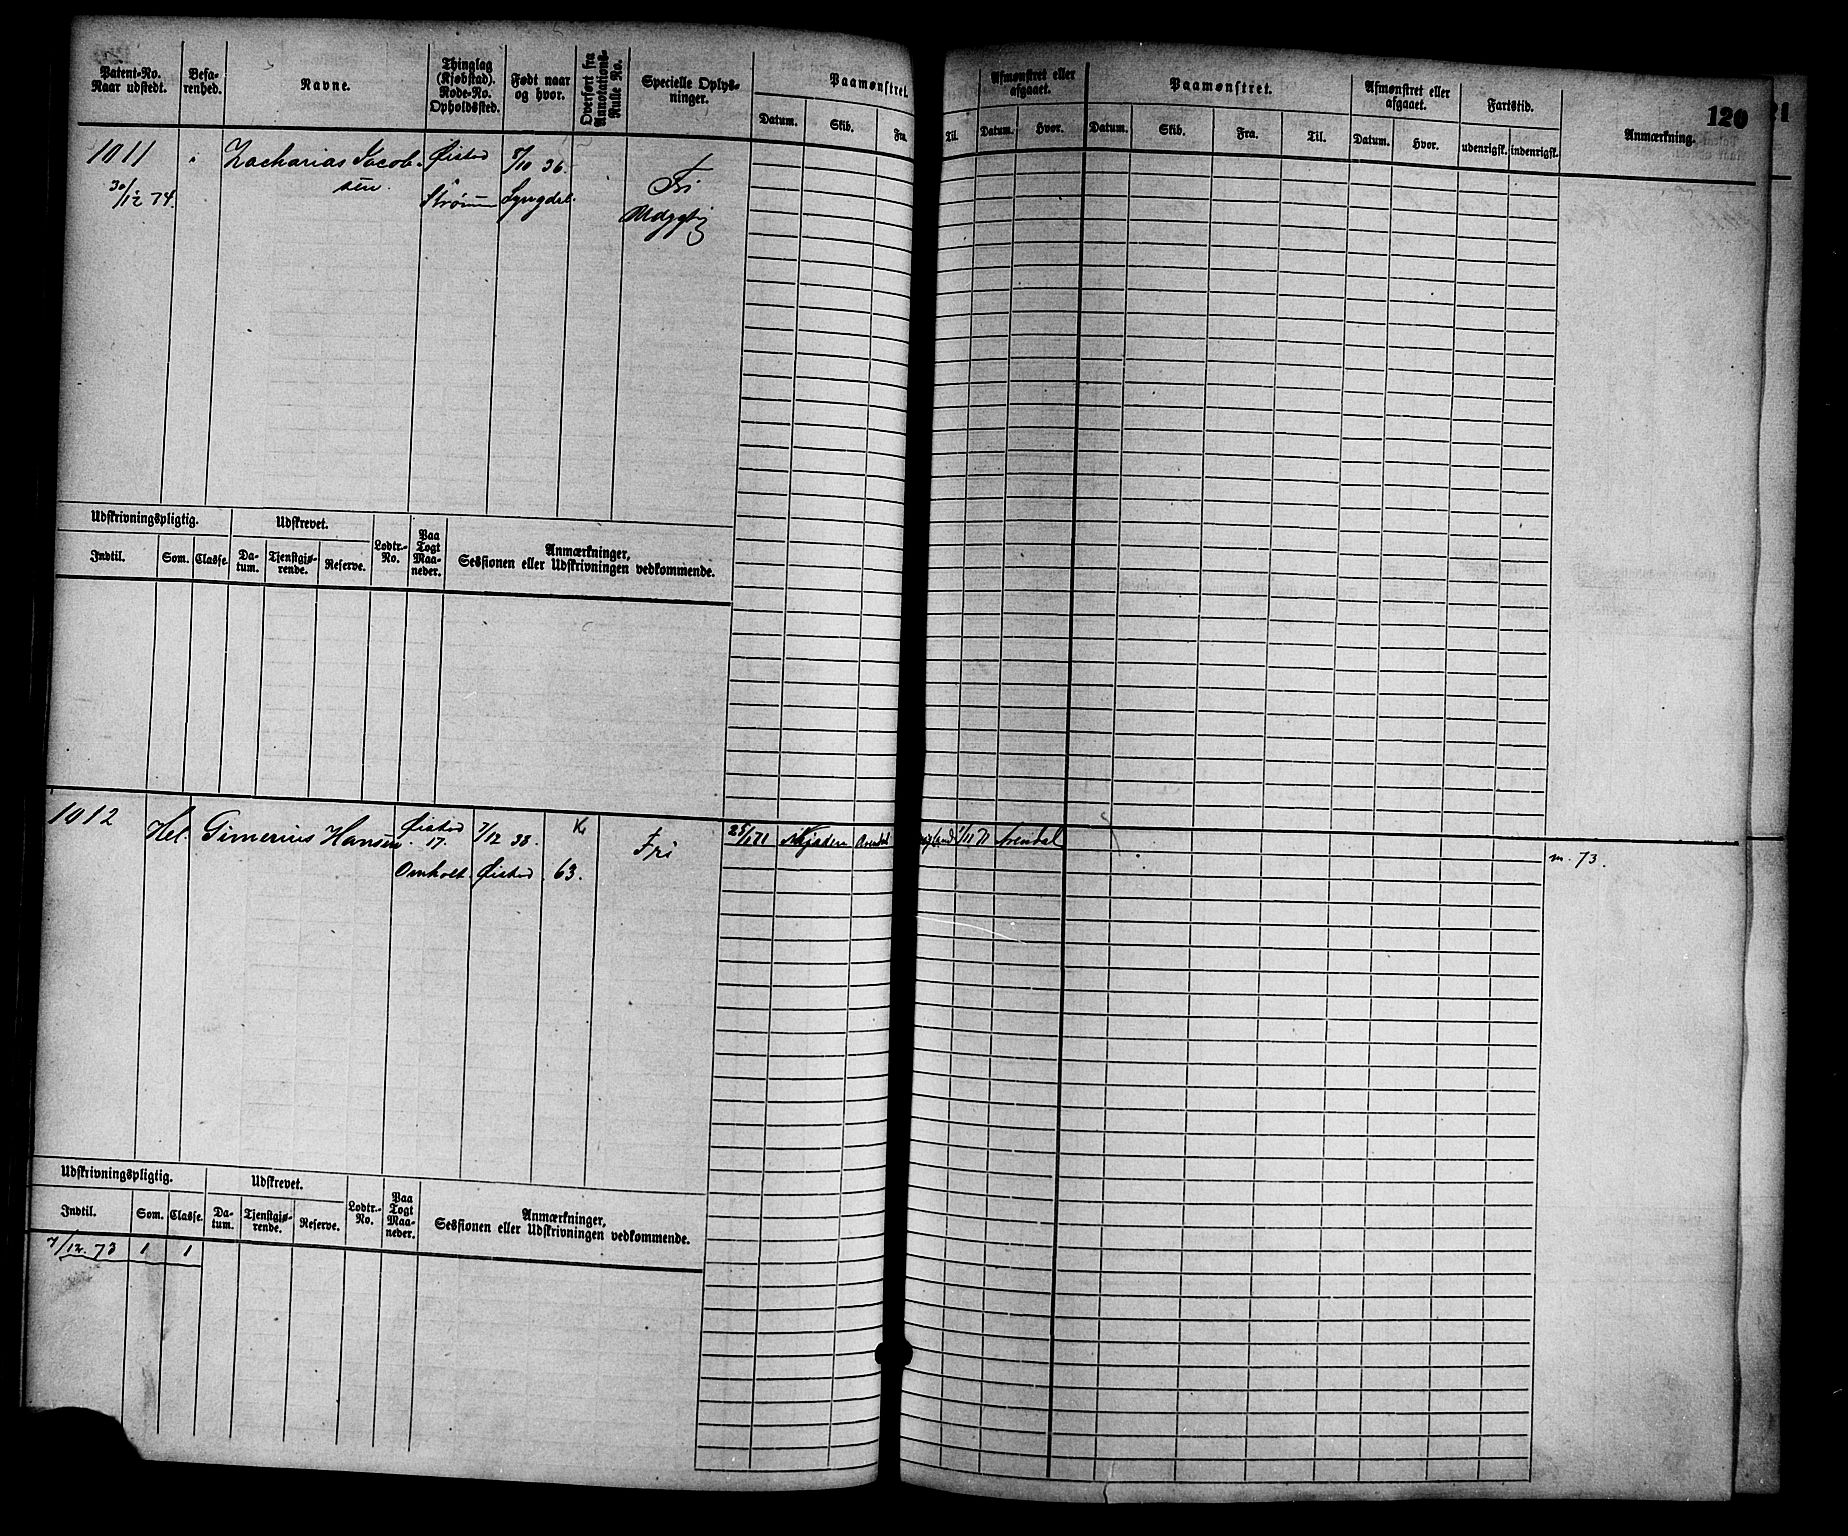 Patent-No. Naar udstedt.
Befarenhed.
Navne.
Thinglag (Kjøbstad). Rode-No. Opholdssted.
Født naar og hvor.
Overført fra Annotations-Rulle No.
Specielle Oplysninger.
Paamønstret.
Datum. Skib. Fra. Til.
Afmønstret eller afgaaet.
Datum. Hvor.
Paamønstret.
Datum. Skib. Fra. Til.
Afmønstret eller afgaaet.
Datum. Hvor.
Fartstid.
udenrigsk. indenrigsk.
Anmærkning.
120
21
1011 Zacharias Jacob- Øistad 8/10 36.
sen.
30/12 74. Strømm Lyngdal. Fri
Udygtig
Udskrivningspligtig. Udskrevet. Lodtr.-No. Paa Togt Maaneder. Anmærkninger, Sessionen eller Udskrivningen vedkommende.
Indtil. Som. Classe. Datum. Tjenstgjørende. Reserve.
1012 Hel. Gimerius Hansen Øistad 7/12 33. Fri 25/ 71 Arendal 71 Arendal m. 73.
17.
Omholt. Øistad 63.
Udskrivningspligtig. Udskrevet. Lodtr.-No. Paa Togt Maaneder. Anmærkninger, Sessionen eller Udskrivningen vedkommende.
Indtil. Som. Classe. Datum. Tjenstgjørende. Reserve.
7/12. 73 1 1